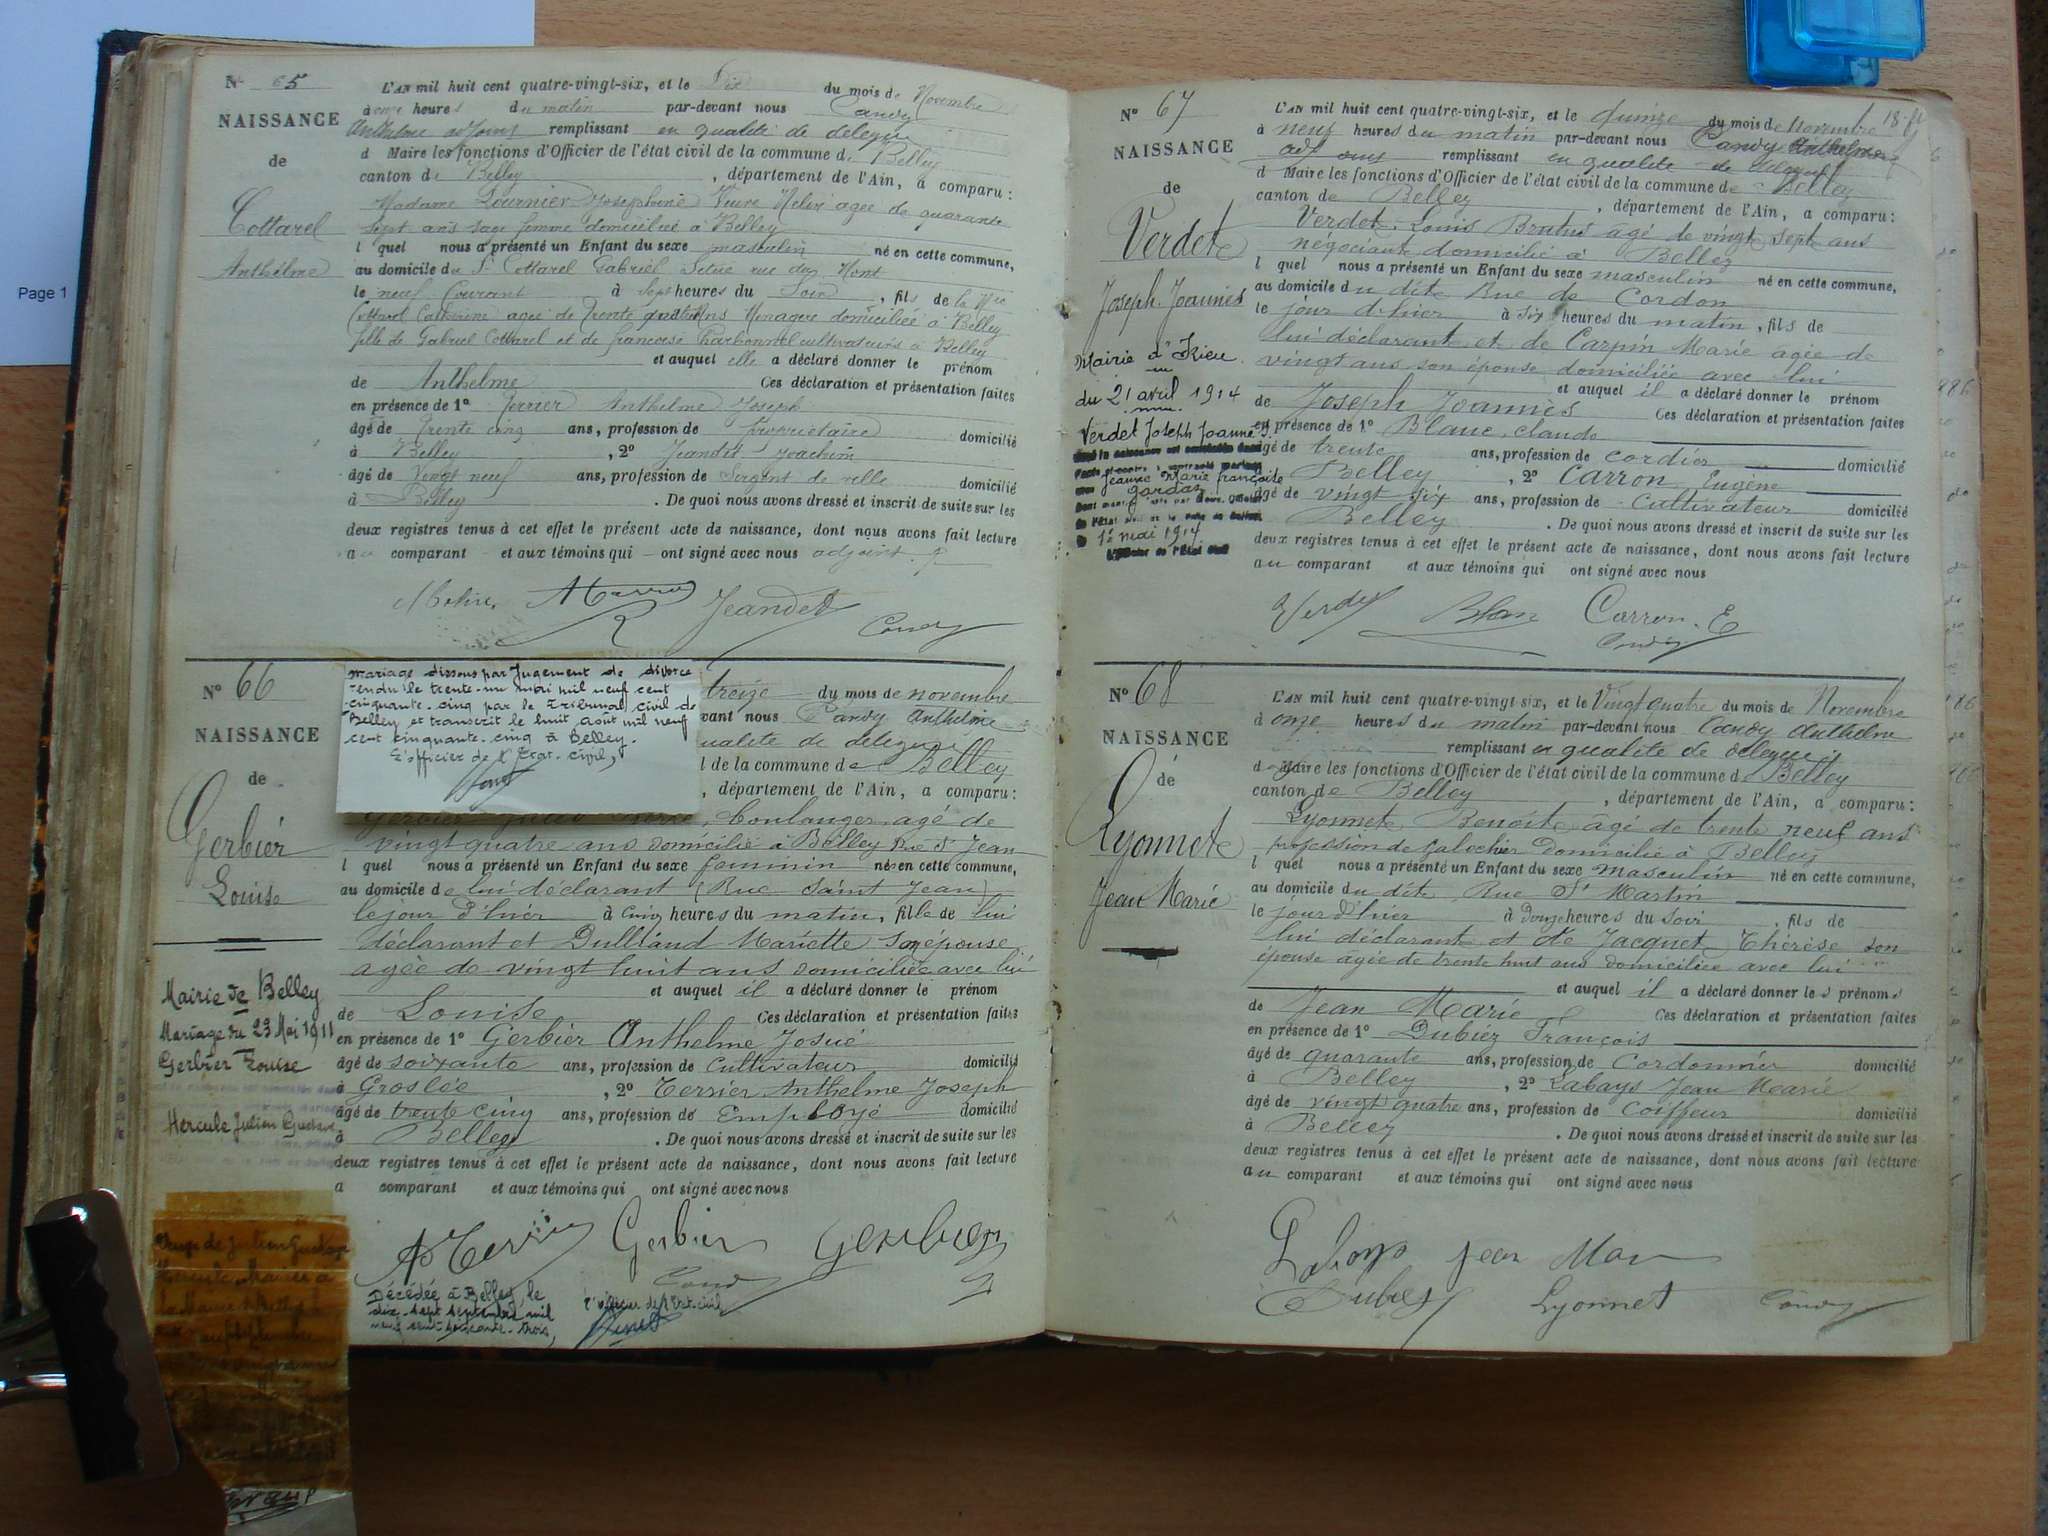 Page 1
N° 65
NAISSANCE
de
Cottarel
Anthelme
L'AN mil huit cent quatre-vingt-six, et le Dix du mois de Novembre
à onze heures du matin par-devant nous Candy
Anthelme adjoint remplissant en qualité de délégué
d Maire les fonctions d'Officier de l'état civil de la commune de Belley
canton de Belley, département de l'Ain, a comparu:
Madame Fournier Josephine Veuve agée de quarante
sept ans sage femme domiciliée à Belley
l quel nous a présenté un Enfant du sexe masculin né en cette commune,
au domicile du Sr Cottarel Gabriel, Située rue des
le neuf Courant à Sept heures du Soir, fils de la
Cottarel Catherine agée de Trente ans Menagère domiciliée à Belley
fille de Gabriel Cottarel et de françoise Charbonnel cultivateurs à Belley
et auquel elle a déclaré donner le prénom
de Anthelme Ces déclaration et présentation faites
en présence de 1° Terrier Anthelme Joseph
âgé de Trente cinq ans, profession de Propriétaire domicilié
à Belley, 2° Jeandet Joachim
âgé de Vingt neuf ans, profession de Sergent de ville domicilié
à Belley. De quoi nous avons dressé et inscrit de suite sur les
deux registres tenus à cet effet le présent acte de naissance, dont nous avons fait lecture
au comparant et aux témoins qui ont signé avec nous adjoint
Jeandet
Candy
N° 66
NAISSANCE
de
Gerbier
Louise
Mairie de Belley
Mariage du 23 Mai 1911
Gerbier Louise
Hercule Julien Gustave
mariage dissous par Jugement de divorce
rendu le trente-un mai mil neuf cent
cinquante-cinq par le Tribunal civil de
Belley et transcrit le huit août mil neuf
cent cinquante-cinq à Belley.
L'officier de l'Etat-civil,
treize du mois de novembre
vant nous Candy Anthelme
qualité de délégué
l de la commune de Belley
, département de l'Ain, a comparu:
Gerbier boulanger, agé de
vingt quatre ans domicilié à Belley Rue St Jean
l quel nous a présenté un Enfant du sexe feminin né en cette commune,
au domicile de lui déclarant (Rue Saint Jean)
le jour d'hier à cinq heures du matin, fille de lui
déclarant et Dulliand Mariette son épouse
agée de vingt huit ans domiciliée avec lui
et auquel il a déclaré donner le prénom
de Louise Ces déclaration et présentation faites
en présence de 1° Gerbier Anthelme Josué
âgé de soixante ans, profession de Cultivateur domicilié
à Groslée, 2° Terrier Anthelme Joseph
âgé de trente cinq ans, profession de Employé domicilié
à Belley. De quoi nous avons dressé et inscrit de suite sur les
deux registres tenus à cet effet le présent acte de naissance, dont nous avons fait lecture
a comparant et aux témoins qui ont signé avec nous
Gerbier Gerbier
Candy
Décédée à Belley, le
dix-sept septembre mil
neuf cent soixante-trois,
L'officier de l'Etat-civil
N° 67
NAISSANCE
de
Verdet
Joseph Joannès
Mairie d'
du 21 avril 1914
Verdet Joseph Joannès
Jeanne Marie françoise
Gardaz
1er mai 1914
L'Officier de l'Etat civil
L'AN mil huit cent quatre-vingt-six, et le quinze du mois de Novembre
à neuf heures du matin par-devant nous Candy Anthelme
remplissant en qualité de délégué
d Maire les fonctions d'Officier de l'état civil de la commune de Belley
canton de Belley, département de l'Ain, a comparu:
Verdet Louis Brutus agé de vingt sept ans
négociant domicilié à Belley
l quel nous a présenté un Enfant du sexe masculin né en cette commune,
au domicile du dit Rue de Cordon
le jour d'hier à six heures du matin, fils de
lui déclarant et de Carpin Marie agée de
vingt ans son épouse domiciliée avec lui
et auquel il a déclaré donner le prénom
de Joseph Joannès Ces déclaration et présentation faites
en présence de 1° Blanc Claude
âgé de trente ans, profession de cordier domicilié
Belley, 2° Carron Eugène
âgé de vingt six ans, profession de Cultivateur domicilié
Belley. De quoi nous avons dressé et inscrit de suite sur les
deux registres tenus à cet effet le présent acte de naissance, dont nous avons fait lecture
au comparant et aux témoins qui ont signé avec nous
Verdet Blanc Carron. E
Candy
N° 68
NAISSANCE
de
Lyonnet
Jean Marie
L'AN mil huit cent quatre-vingt-six, et le Vingt quatre du mois de Novembre
à onze heures du matin par-devant nous Candy Anthelme
remplissant en qualité de délégué
d Maire les fonctions d'Officier de l'état civil de la commune de Belley
canton de Belley, département de l'Ain, a comparu:
Lyonnet Benoit agé de trente neuf ans
profession de galochier domicilié à Belley
l quel nous a présenté un Enfant du sexe masculin né en cette commune,
au domicile du dit, Rue St Martin
le jour d'hier à Douze heures du soir, fils de
lui déclarant et de Jacquet Thérèse son
épouse agée de trente huit ans domiciliée avec lui
et auquel il a déclaré donner les prénoms
de Jean Marie Ces déclaration et présentation faites
en présence de 1° Dubiez François
âgé de quarante ans, profession de Cordonnier domicilié
à Belley, 2° Labays Jean Marie
âgé de vingt quatre ans, profession de Coiffeur domicilié
à Belley. De quoi nous avons dressé et inscrit de suite sur les
deux registres tenus à cet effet le présent acte de naissance, dont nous avons fait lecture
au comparant et aux témoins qui ont signé avec nous
Labays Jean Mari
Lyonnet Candy